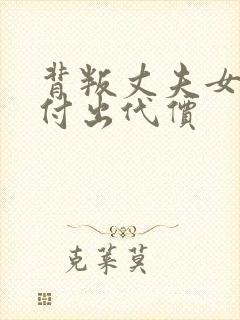 背叛丈夫女
付出代價
克萊莫